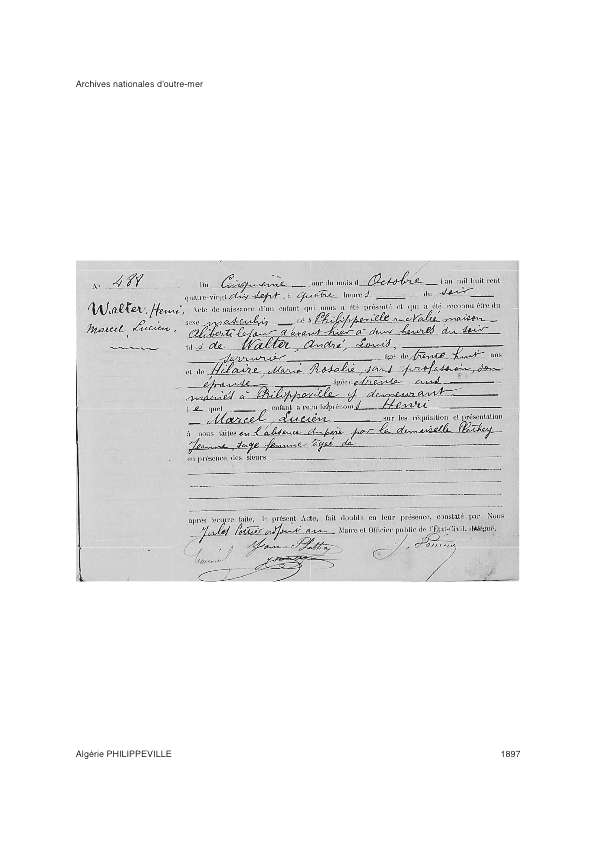 Archives nationales d'outre-mer
N° 488
Walter, Henri,
Marcel Lucien.
Du Cinquième jour du mois d'Octobre l'an mil huit cent
quatre-vingt dix sept, à quatre heures du soir
Acte de naissance d'un enfant qui nous a été présenté et qui a été reconnu être du
sexe masculin né à Philippeville maison
Aliberti le jour d'avant hier à deux heures du soir
fils de Walter, André, Louis,
serrurier âgé de trente huit ans
et de Hilaire, Marie Rosalie, sans profession, son
épouse âgée de trente ans
mariés à Philippeville y demeurant
lequel enfant a reçu les prénoms Henri
Marcel Lucien sur les réquisition et présentation
à nous faites en l'absence du père par la demoiselle
Jeanne sage femme âgée de
en présence des sieurs
après lecture faite, le présent Acte, fait double en leur présence, constaté par Nous
adjoint au Maire et Officier public de l'État-Civil, délégué,
Algérie PHILIPPEVILLE
1897